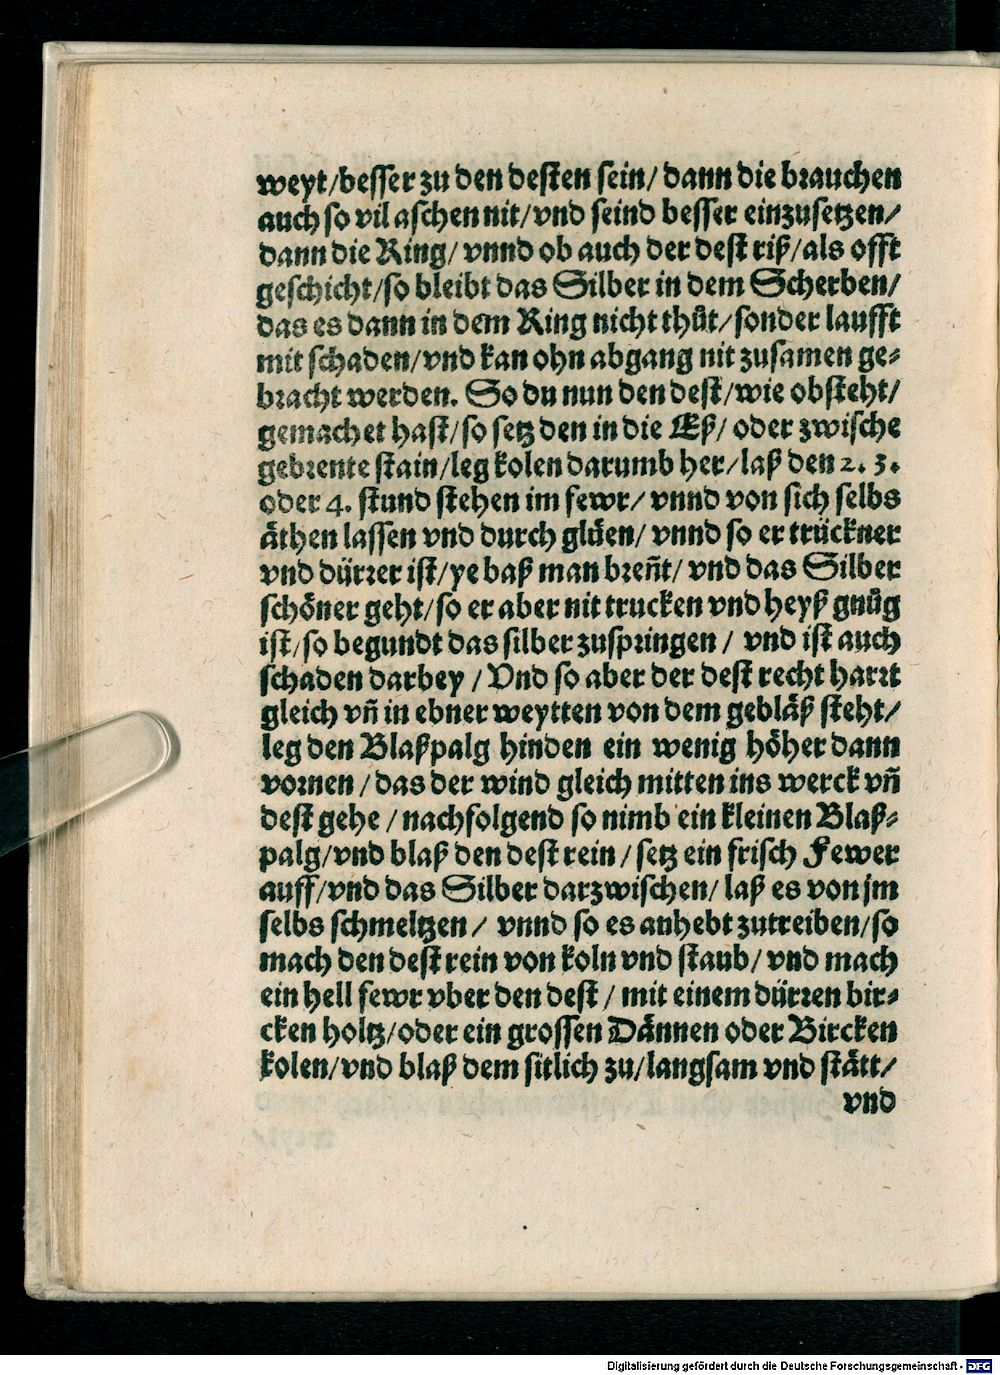 weyt/besser zu den desten sein/ dann die brauchen
auch so vil aschen nit/vnd seind besser einzusetzen/
dann die Ring/ vnnd ob auch der dest riß/als offt
geschicht/so bleibt das Silber in dem Scherben/
das es dann in dem Ring nicht thůt/sonder laufft
mit schaden/vnd kan ohn abgang nit zusamen ge-
bracht werden. So du nun den dest/wie obsteht/
gemachet hast/so setz den in die Eß/ oder zwische
gebrente stain/leg kolen darumb her/laß den 2. 3.
oder 4. stund stehen im fewr/ vnnd von sich selbs
äthen lassen vnd durch glüen/ vnnd so er trückner
vnd dürrer ist/ye baß man breñt/ vnd das Silber
schöner geht/so er aber nit trucken vnd heyß gnůg
ist/so begundt das silber zuspringen / vnd ist auch
schaden darbey / Vnd so aber der dest recht harrt
gleich vñ in ebner weytten von dem gebläß steht/
leg den Blaßpalg hinden ein wenig höher dann
vornen / das der wind gleich mitten ins werck vñ
dest gehe / nachfolgend so nimb ein kleinen Blaß-
palg/vnd blaß den dest rein / setz ein frisch Fewer
auff/vnd das Silber darzwischen/ laß es von jm
selbs schmeltzen / vnnd so es anhebt zutreiben/so
mach den dest rein von koln vnd staub/ vnd mach
ein hell fewr vber den dest / mit einem dürren bir-
cken holtz/oder ein grossen Dännen oder Bircken
kolen/vnd blaß dem sitlich zu/langsam vnd stätt/
vnd
Digitalisierung gefördert durch die Deutsche Forschungsgemeinschaft - DFG